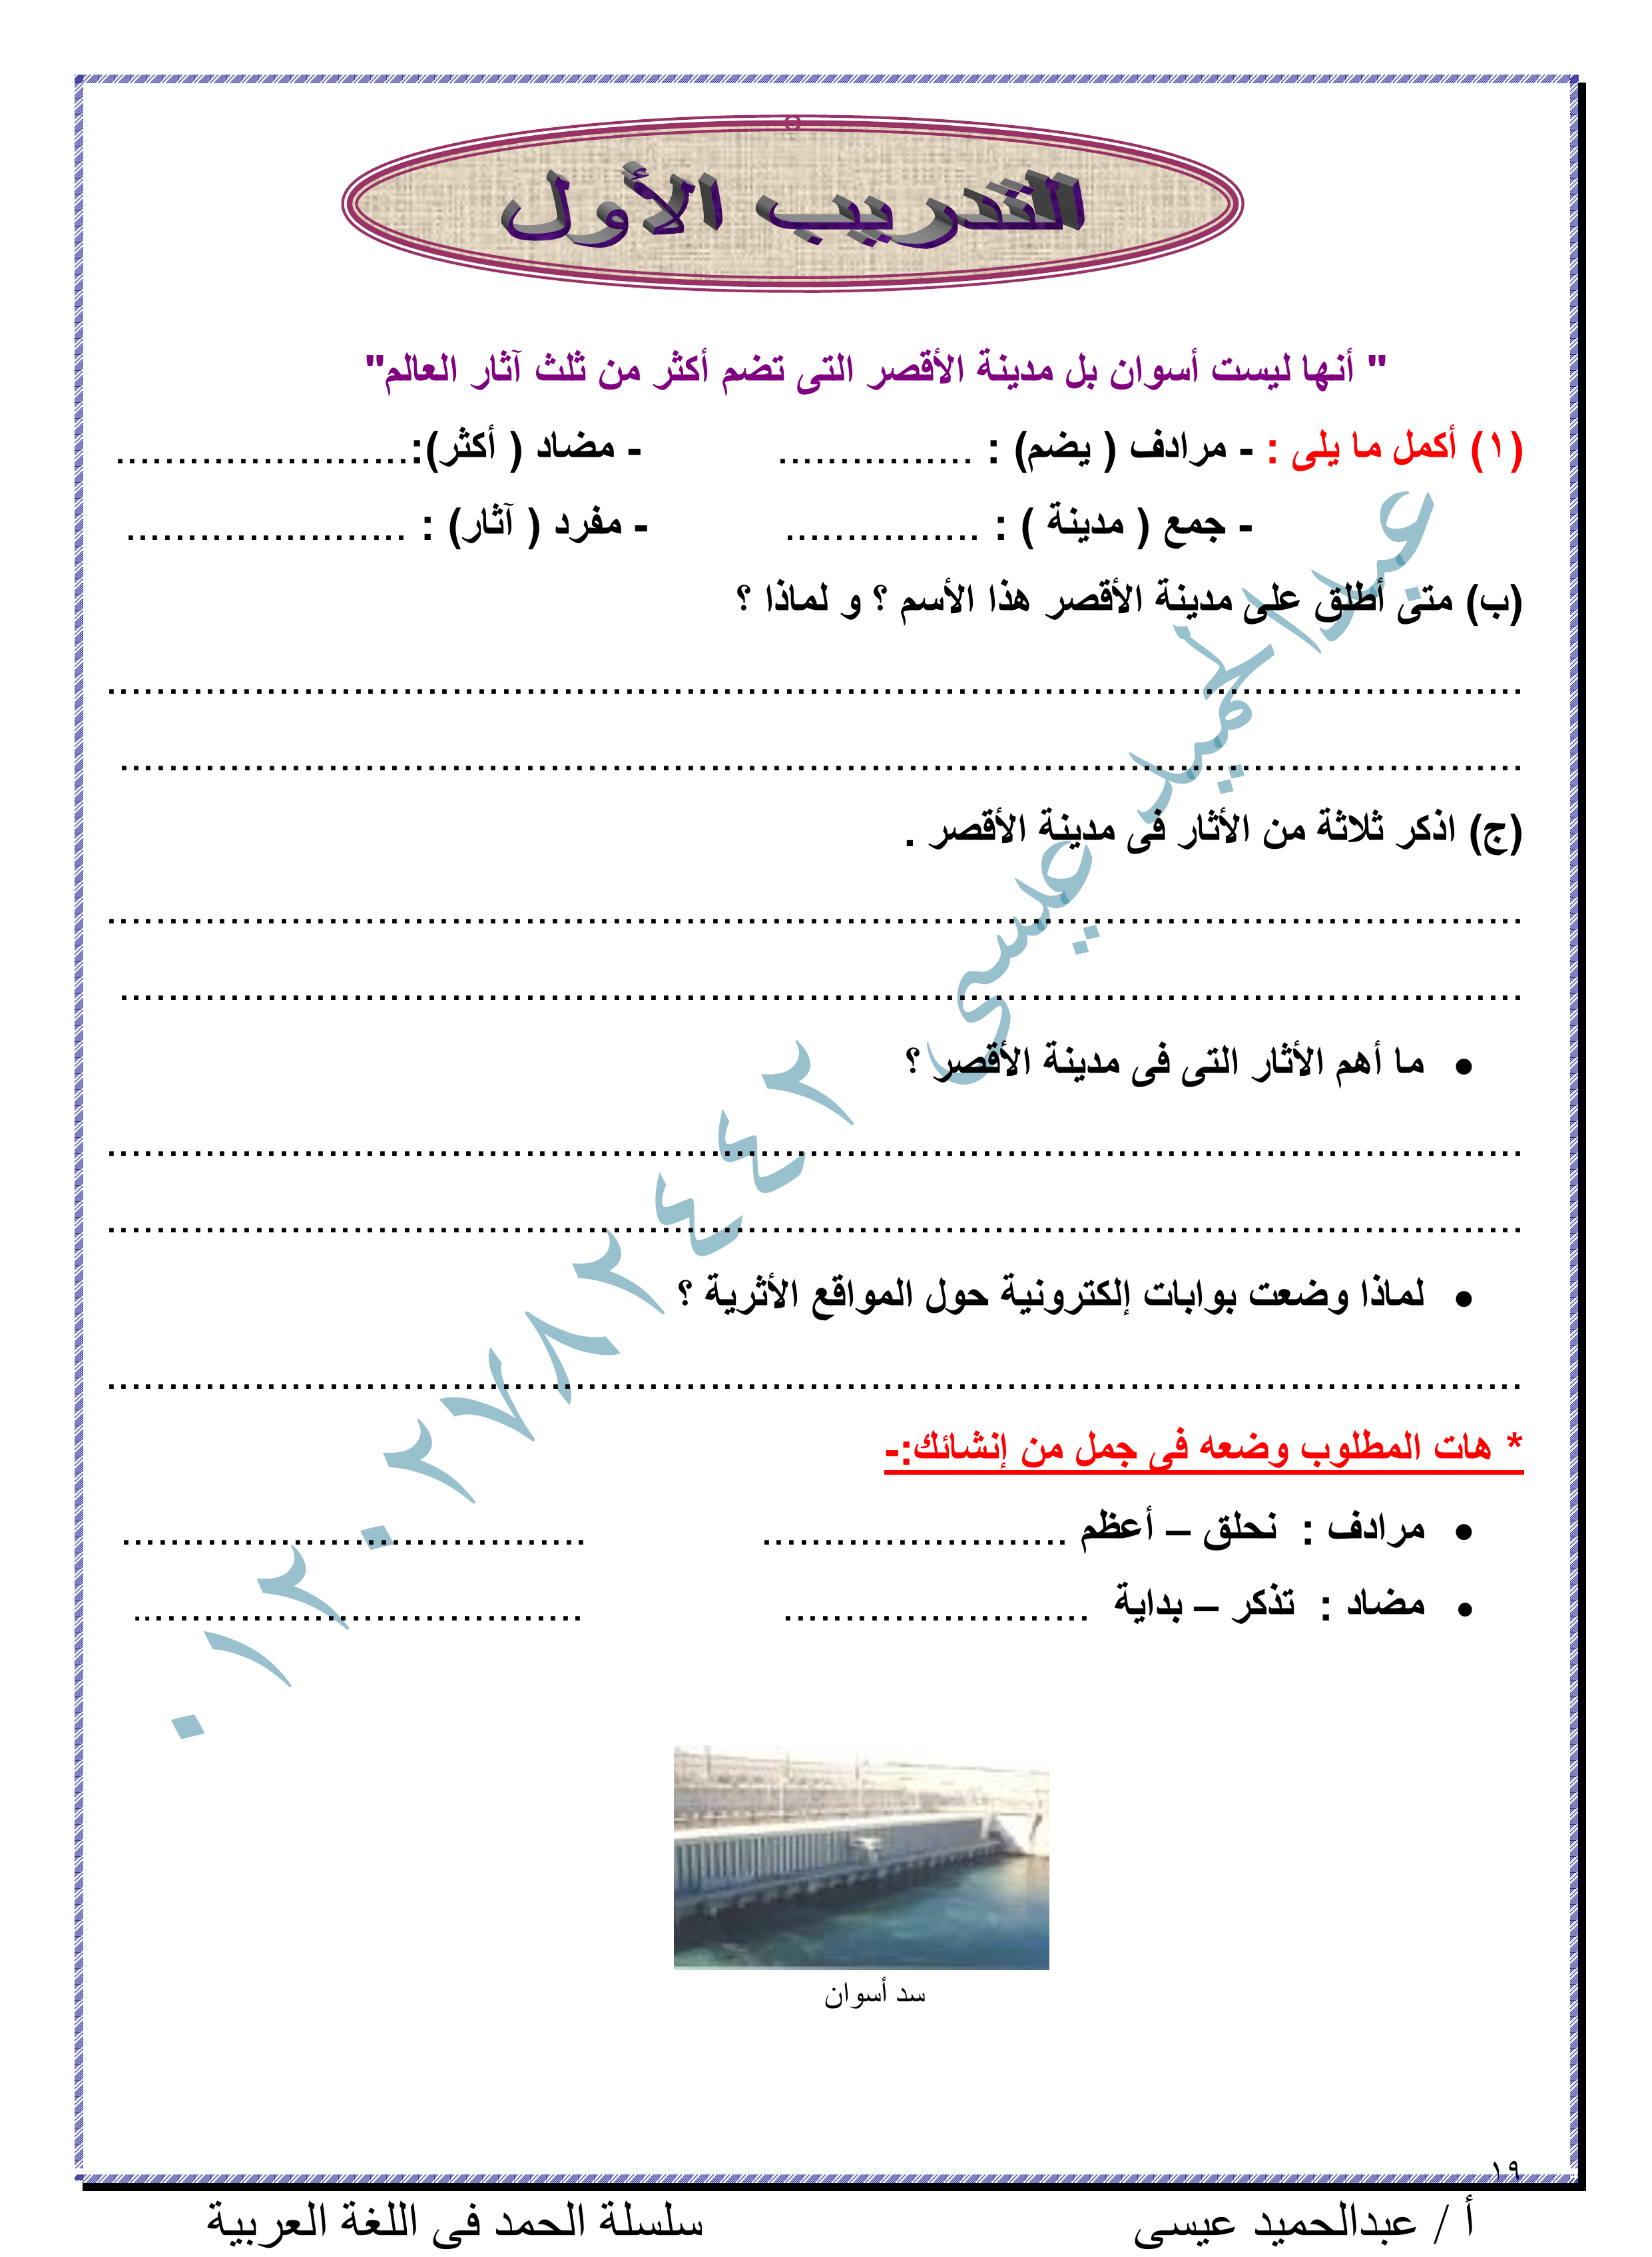 التدريب الأول
" أنها ليست أسوان بل مدينة الأقصر التى تضم أكثر من ثلث آثار العالم"
(١) أكمل ما يلى : - مرادف ( يضم) : ................ - مضاد ( أكثر):........................
- جمع ( مدينة ) : ................ - مفرد ( آثار) : .......................
(ب) متى أطلق على مدينة الأقصر هذا الأسم ؟ و لماذا ؟
........................................................................................................
........................................................................................................
(ج) اذكر ثلاثة من الأثار فى مدينة الأقصر .
........................................................................................................
........................................................................................................
• ما أهم الأثار التى فى مدينة الأقصر ؟
........................................................................................................
........................................................................................................
• لماذا وضعت بوابات إلكترونية حول المواقع الأثرية ؟
........................................................................................................
* هات المطلوب وضعه فى جمل من إنشائك:-
• مرادف : نحلق – أعظم ......................... ......................................
• مضاد : تذكر – بداية ......................... .....................................
عبدالحميد عيسى ٠١٢٠٢٧٨٢٤٤٢
سد أسوان
١٩
أ / عبدالحميد عيسى سلسلة الحمد فى اللغة العربية